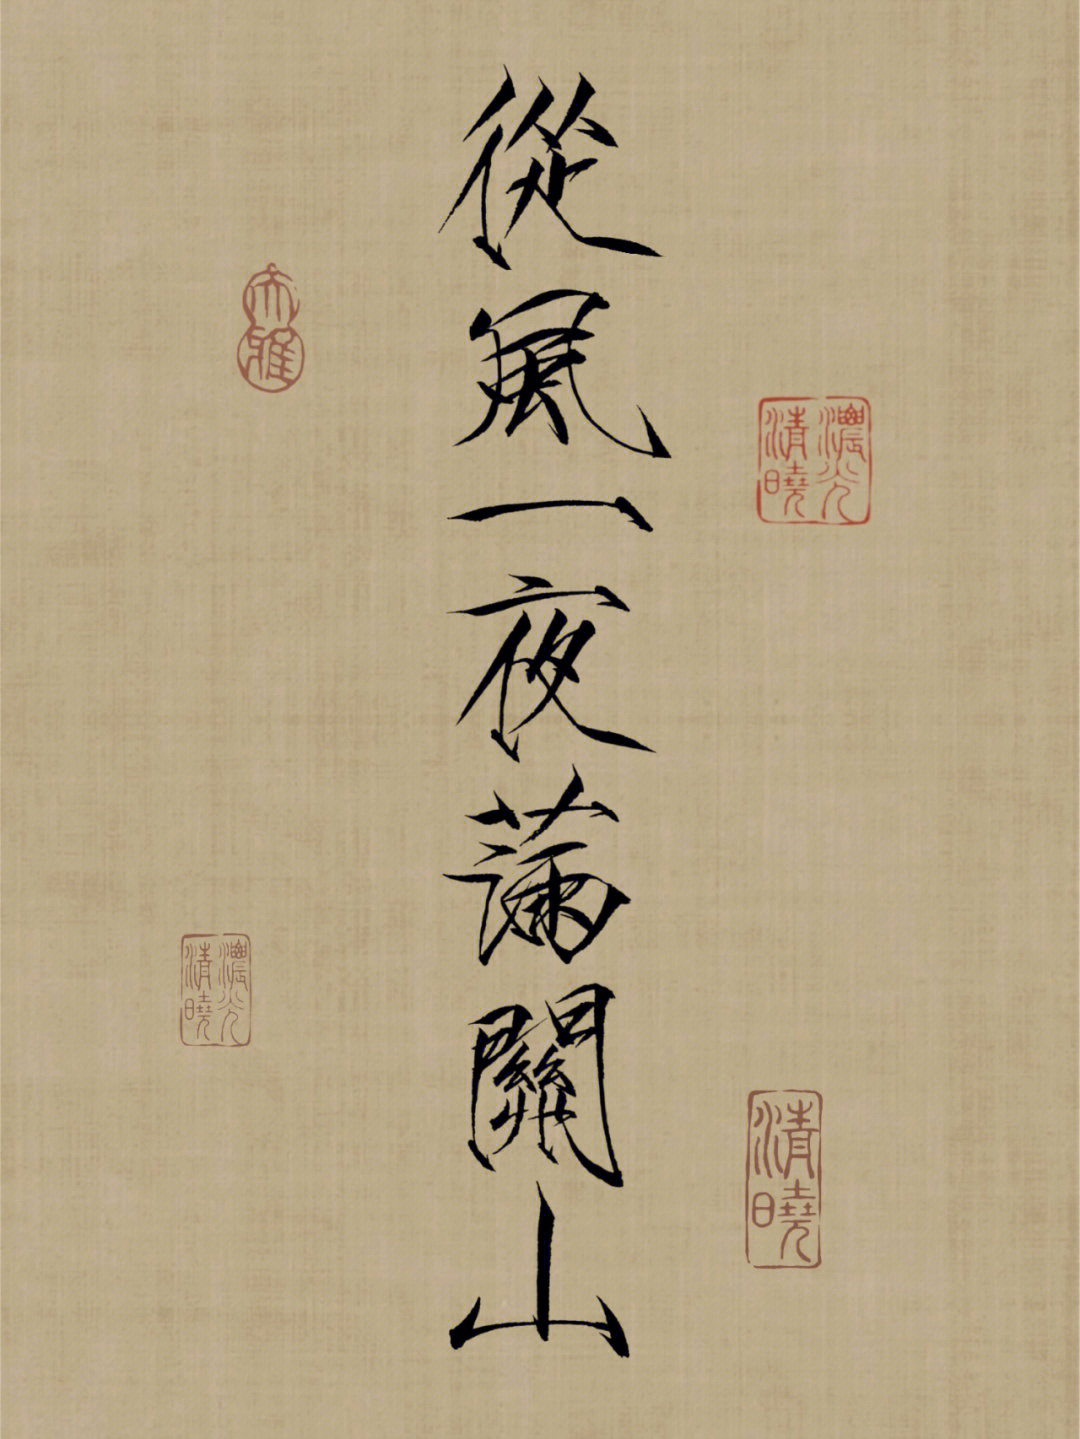 從風一夜滿關山
大雅
濃光
清曉
濃光
清曉
清曉